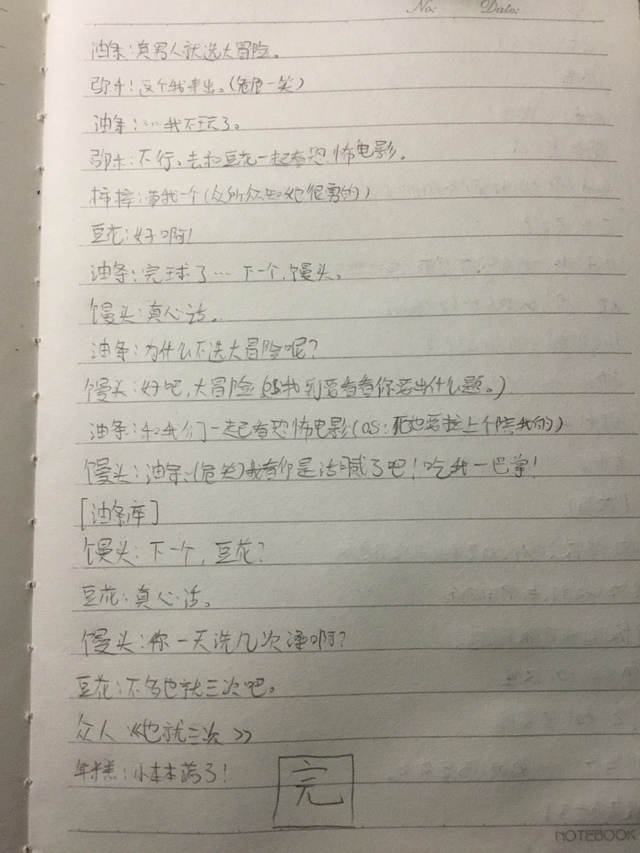 No: Date:
油条:真男人就选大冒险。
弥卡:这个我来出。(危危一笑)
油条:…我不玩了。
弥卡:不行,去和豆花一起看恐怖电影。
梓梓:带我一个(众所众知她很勇的)
豆花:好啊!
油条:完球了…下一个,馒头。
馒头:真心话。
油条:为什么不选大冒险呢?
馒头:好吧,大冒险(OS:我到要看看你要出什么题。)
油条:和我们一起看恐怖电影(OS:死也要拉上个陪我的)
馒头:油条:(危笑)我看你是活腻了吧!吃我一巴掌!
[油条库]
馒头:下一个,豆花?
豆花:真心话。
馒头:你一天洗几次澡啊?
豆花:不多也就三次吧。
众人《也就三次》
年糕:小本本满了!
完
NOTEBOOK